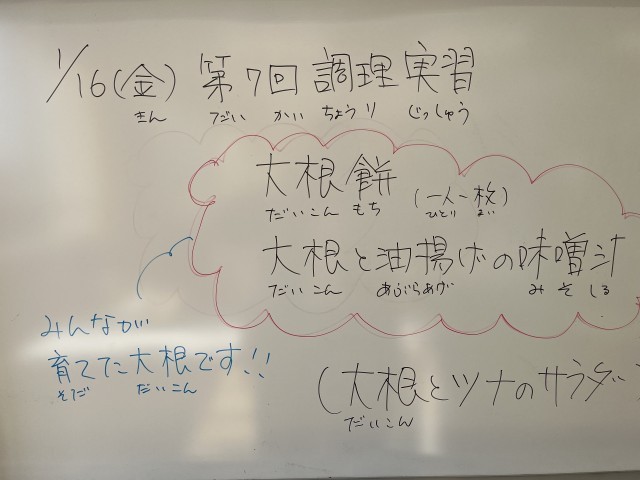 1/16(金) 第7回 調理実習
きん だい かい ちょうり じっしゅう
大根餅 (一人一枚)
だいこん もち ひとり まい
大根と油揚げの味噌汁
だいこん あぶらあげ みそしる
みんなが
育てた大根です!!
そだ だいこん
(大根とツナのサラダ)
だいこん